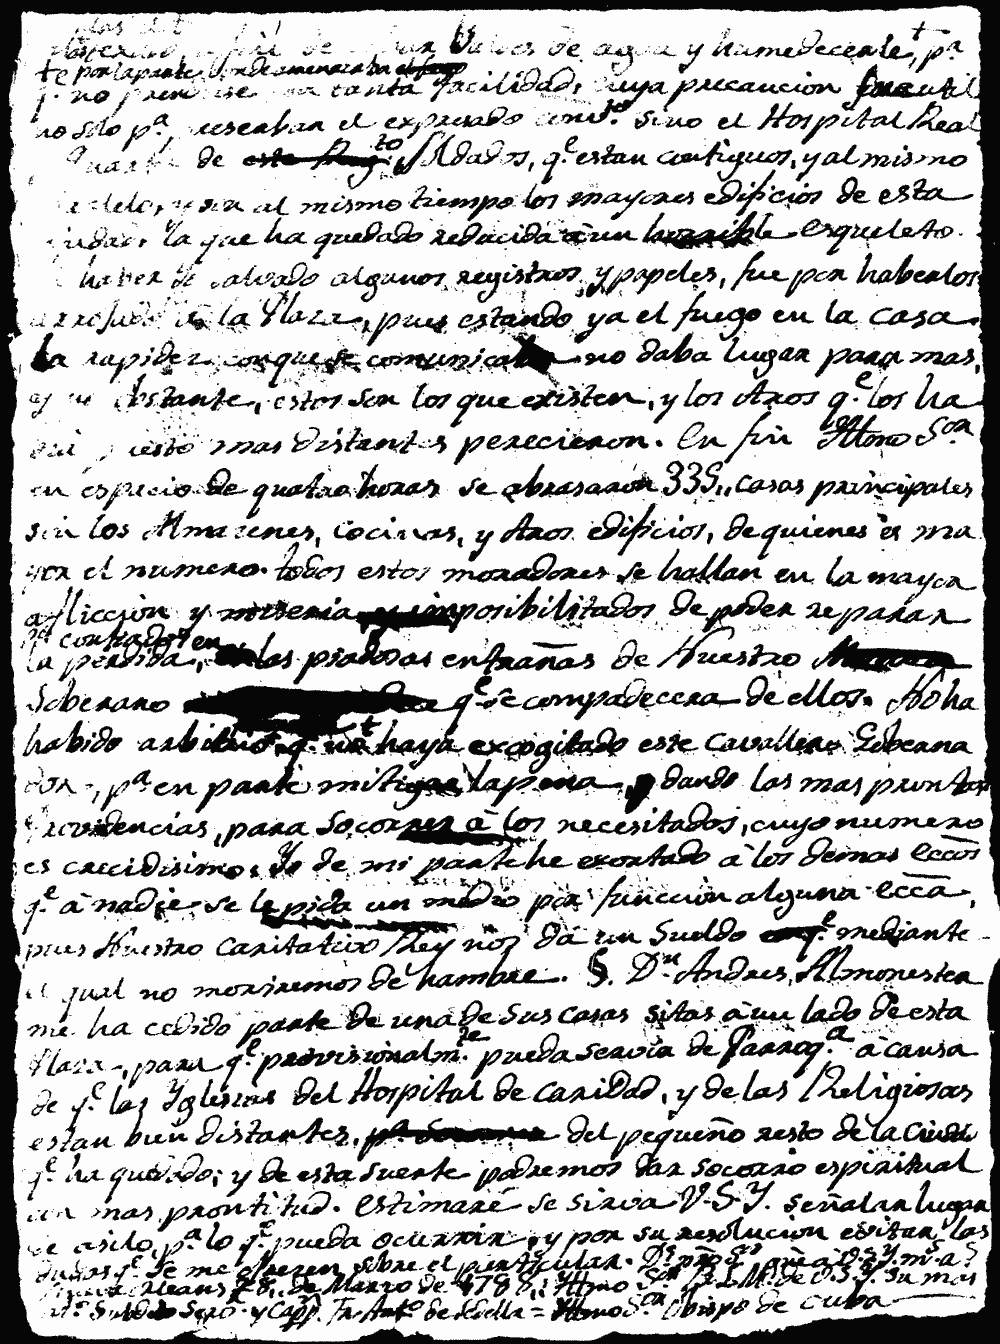 de agua y humedecerle, pa
te por la parte donde amenazaba el fuego
qe no prendiese con tanta facilidad, cuya precaucion fue util
no solo pa preservar el expresado convto sino el Hospital Real
Quartel de este Regto Soldados, qe estan contiguos, y al mismo
modelo, y son al mismo tiempo los mayores edificios de esta
Ciudad, la que ha quedado reducida a un horrible esqueleto.
haver se salvado algunos registros, y papeles, fue por haberlos
arrojado a la Plaza, pues estando ya el fuego en la casa
la rapidez con que se comunicaba no daba lugar para mas,
y no obstante, estos son los que existen, y los otros qe los ha
via puesto mas distantes perecieron. En fin Illmo Sor
en espacio de quatro horas se abrasaron 335,, casas principales
sin los Almazenes, cocinas, y otros edificios, de quienes es ma
yor el numero. todos estos moradores se hallan en la mayor
afliccion y miseria y imposibilitados de poder reparar
contrados en
la perdida, las piadosas entrañas de Nuestro
Soberano qe se compadecera de ellos. No ha
habido arbitrio, qe no haya excogitado este Cavallero Goberna
dor, pa en parte mitigar la pena, dando las mas prontas
Providencias, para socorrer à los necesitados, cuyo numero
es crecidisimo. Yo de mi parte he exortado à los demas eccos
qe à nadie se le pida un medio por funcion alguna ecca,
pues Nuestro caritativo Rey nos da un Sueldo qe mediante
el qual no moriremos de hambre. §. Dn Andres Almonester
me ha cedido parte de una de sus casas sitas à un lado de esta
Plaza, para qe provisionalmte pueda servir de Parroqa à causa
de qe las Yglesias del Hospital de Caridad, y de las Religiosas
estan bien distantes, del pequeño resto de la Ciudad
qe ha quedado; y de esta suerte podremos dar socorro espiritual
con mas prontitud. Estimaré se sirva V.S.Y. señalar lugar
de asilo, pa lo qe pueda ocurrir, y por su resolucion evitar las
dudas qe se me ofrecen sobre el particular. Ds nro Sor gue a V.S.Y. ms as
Nueva Orleans 28,, de Marzo de 1788,, Illmo Sor B.L.M. de V.S.Y. su mas
Servo y Capp. Fr. Anto de Sedella = Illmo Sor Obispo de Cuba